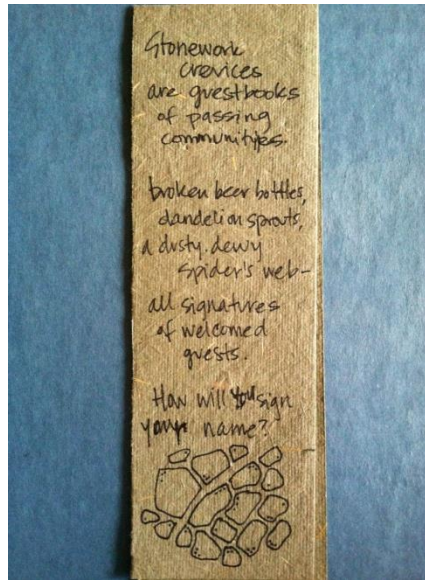 Stonework
crevices
are guestbooks
of passing
communities.
broken beer bottles,
dandelion sprouts,
a dusty, dewy
spider's web-
all signatures
of welcomed
guests.
How will you sign
your name?